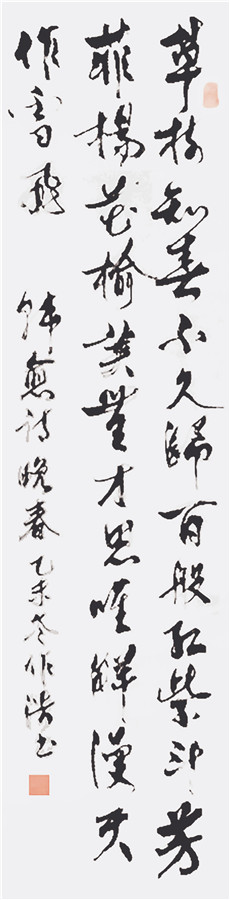 草樹知春不久歸百般紅紫斗芳
菲楊花榆莢無才思唯解漫天
作雪飛
韓愈詩晚春乙未冬作書